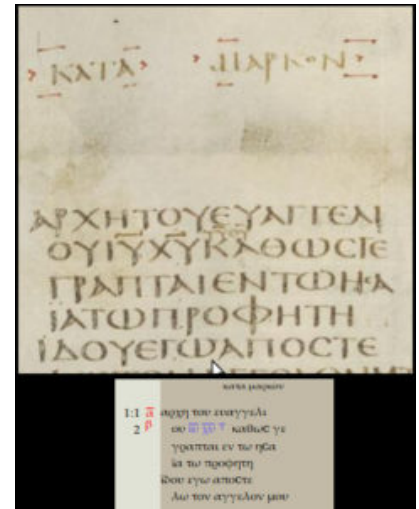 ΚΑΤΑ ΜΑΡΚΟΝ
ΑΡΧΗΤΟΥΕΥΑΓΓΕΛΙ
ΟΥΙΥΧΥΚΑΘΩCΓΕ
ΓΡΑΠΤΑΙΕΝΤΩΗCΑ
ΙΑΤΩΠΡΟΦΗΤΗ
ΪΔΟΥΕΓΩΑΠΟCΤΕ
κατα μαρκον
1:1 αρχη του ευαγγελι
2 ου ιυ χυ καθωc γε
γραπται εν τω ηcα
ϊα τω προφητη
ϊδου εγω αποcτε
λω τον αγγελον μου